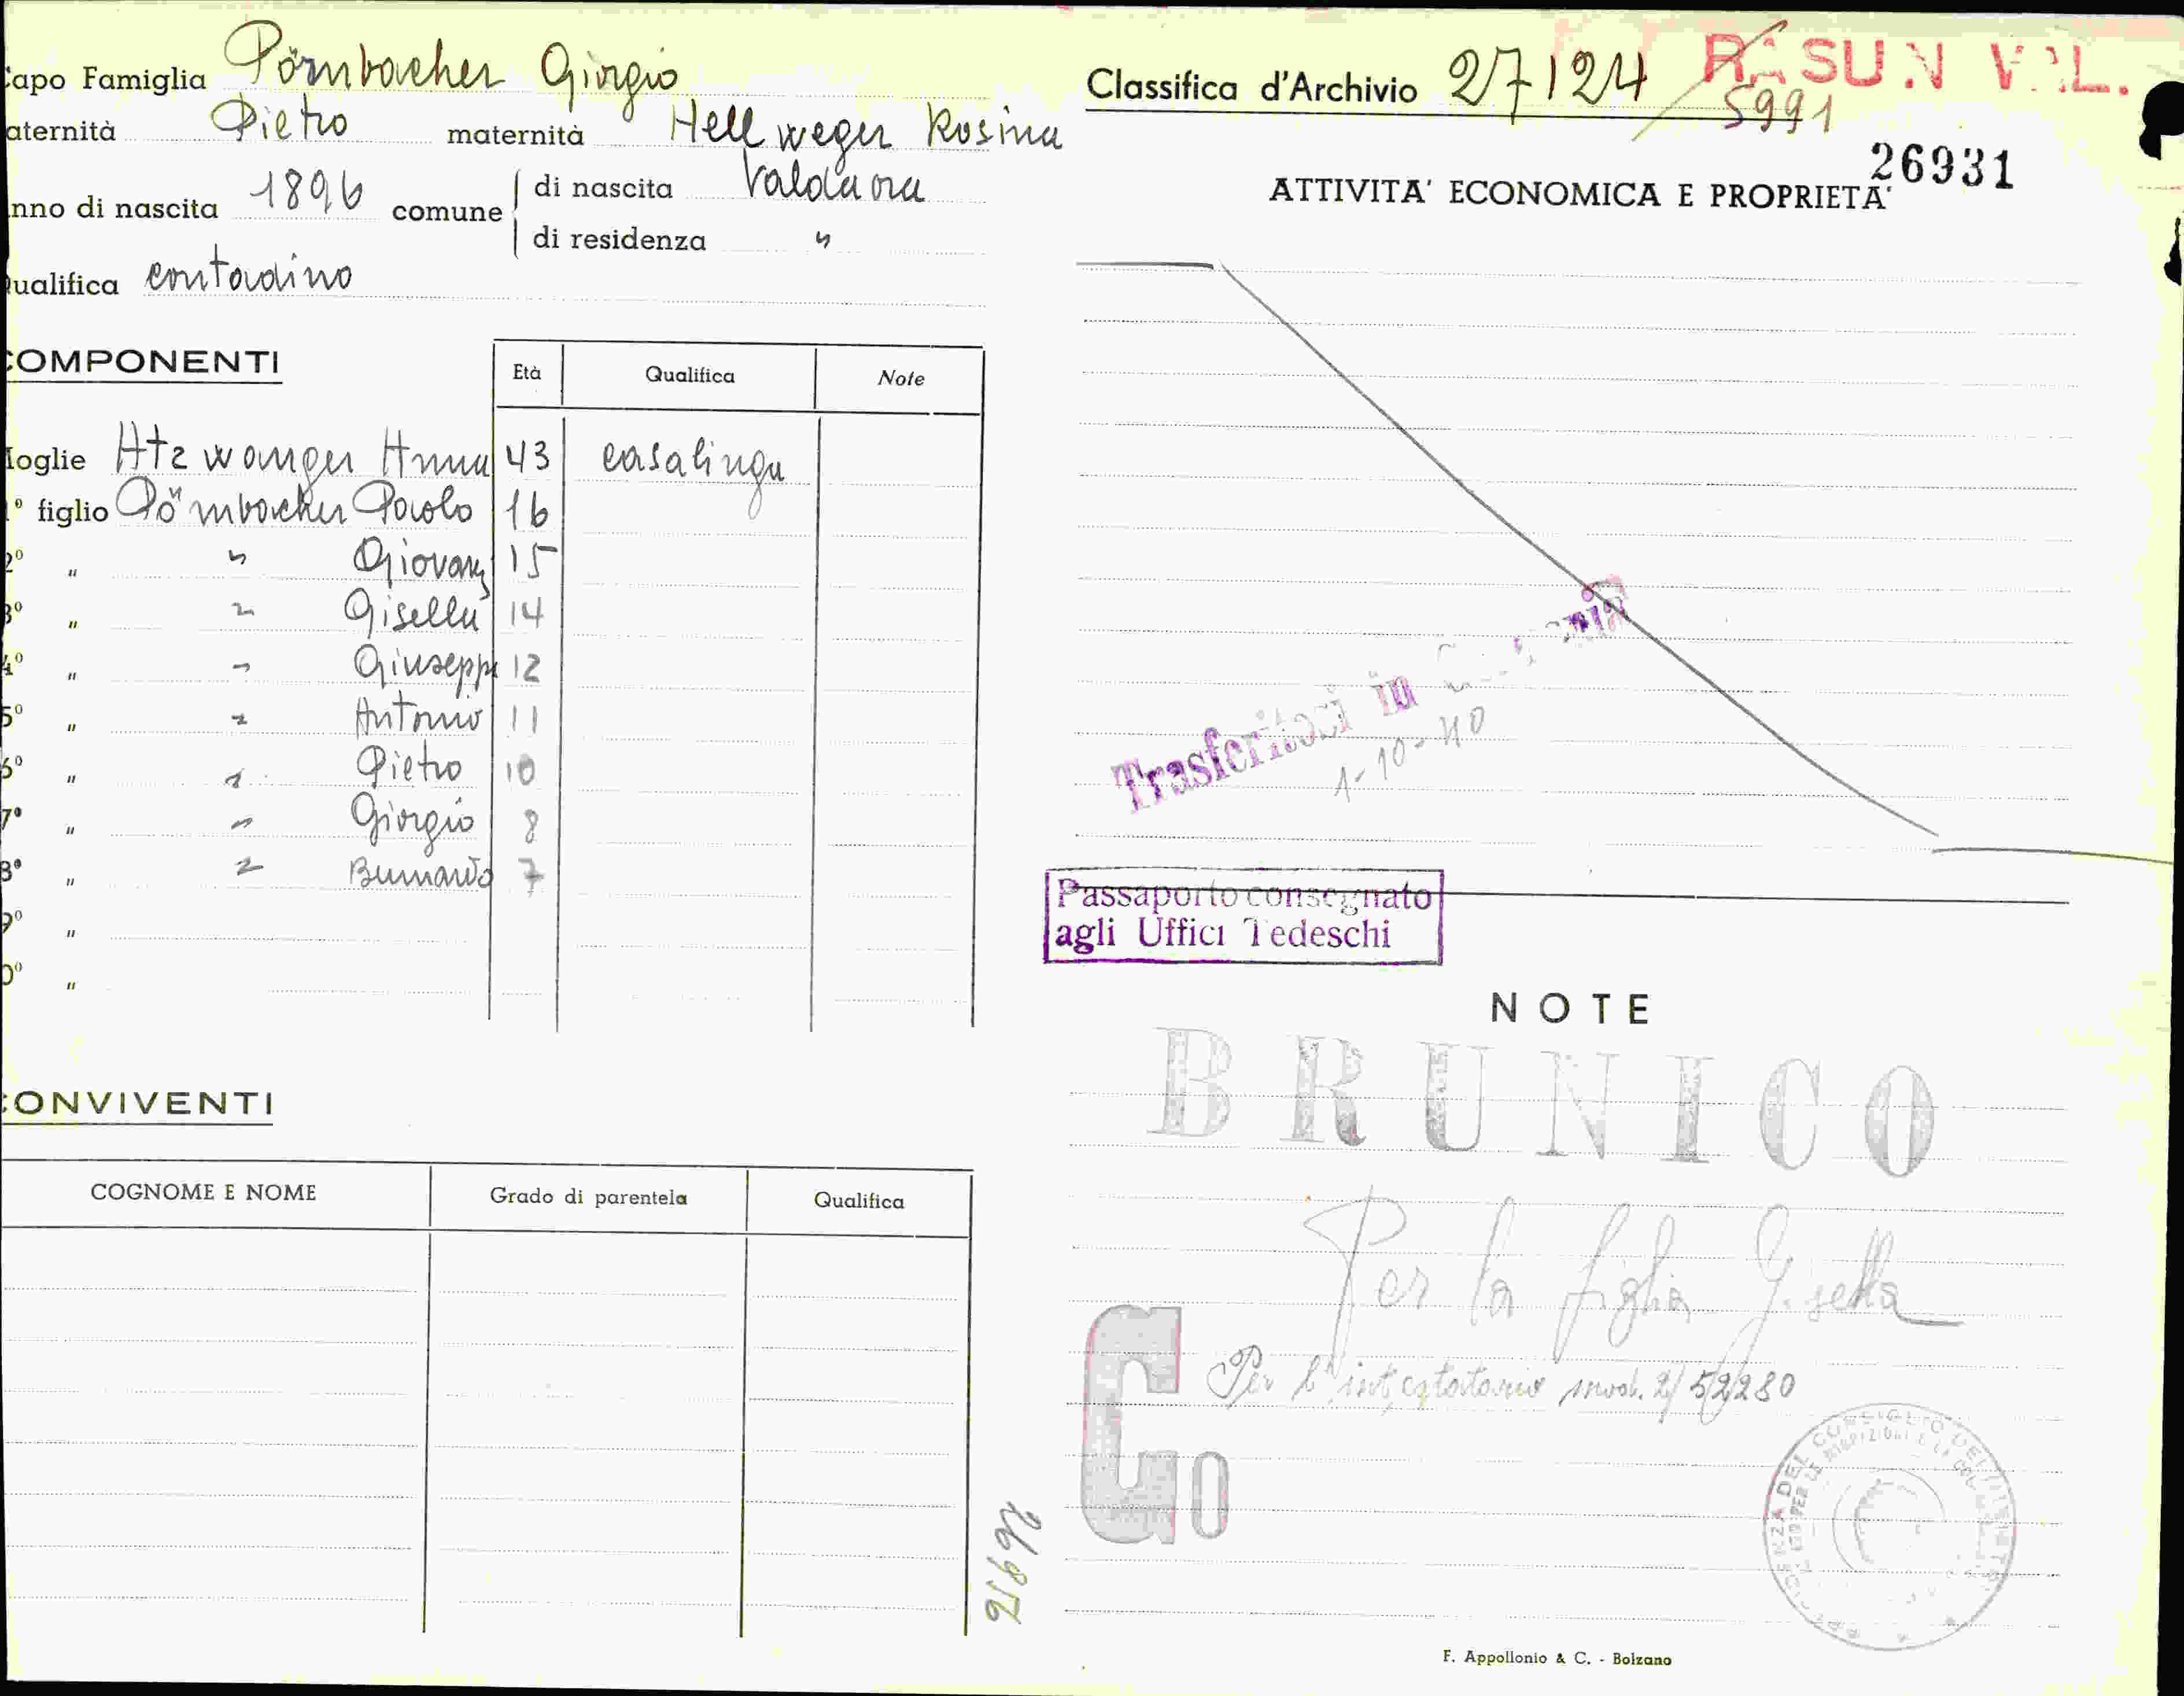 Capo Famiglia Pörnbacher Giorgio
aternità Pietro maternità Hellweger Rosina
nno di nascita 1896 comune di nascita Valdaora
di residenza "
ualifica contadino
COMPONENTI
Età Qualifica Note
Moglie Atzwanger Anna 43 casalinga
1º figlio Pörnbacher Paolo 16
2º " " Giovan 15
3º " " Gisella 14
4º " " Giusepp 12
5º " " Antonio 11
6º " " Pietro 10
7º " " Giorgio 8
8º " " Bernardo 7
9º "
0º "
CONVIVENTI
COGNOME E NOME Grado di parentela Qualifica
26956
Classifica d'Archivio 27124 RASUN VAL.
5991
26931
ATTIVITA' ECONOMICA E PROPRIETA'
Trasferitosi in Germania
1-10-40
Passaporto consegnato
agli Uffici Tedeschi
NOTE
BRUNICO
Per la figlia Gisella
Per l'intestatario mod. 2/52280
Go
F. Appollonio & C. - Bolzano